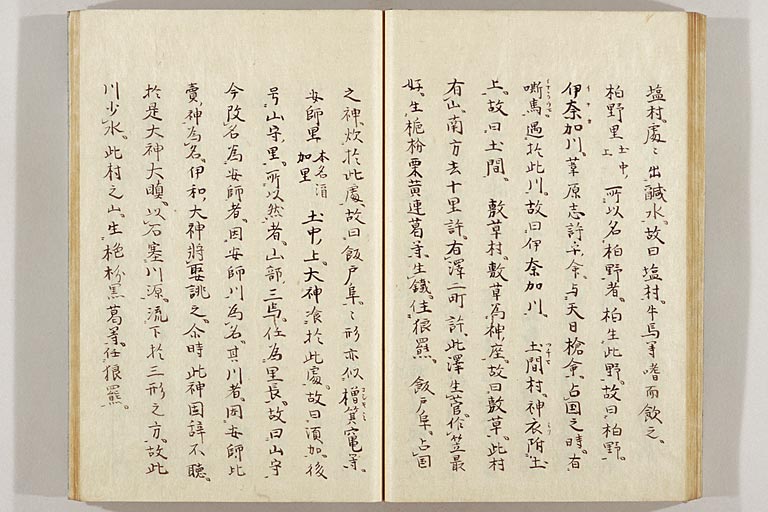 塩村。處〻出鹹水。故曰塩村。牛馬等嗜而飲之。
柏野里 土中上 所以名柏野者。柏生此野。故曰柏野。
伊奈加川。葦原志許乎命。与天日槍命。占国之時。有
嘶馬。遇於此川。故曰伊奈加川。土間村。神衣附土
上。故曰土間。敷草村。敷草為神座。故曰敷草。此村
有山。南方去十里許。有澤二町許。此澤生菅。作笠最
好。生梔枌栗黄連葛等。生鐵。住狼羆。飯戸阜。占国
之神炊於此處。故曰飯戸阜。〻形亦似檜箕竃等。
安師里 本名酒加里 土中上。大神飡於此處。故曰須加。後
号山守里。所以然者。山部三馬。任為里長。故曰山守
今改名為安師者。因安師川為名。其川者。因安師比
賣神為名。伊和大神将娶誂之。尒時此神固辞不聴。
於是大神大瞋。以石塞川源。流下於三形之方。故此
川少水。此村之山。生枌黒葛等。住狼羆。